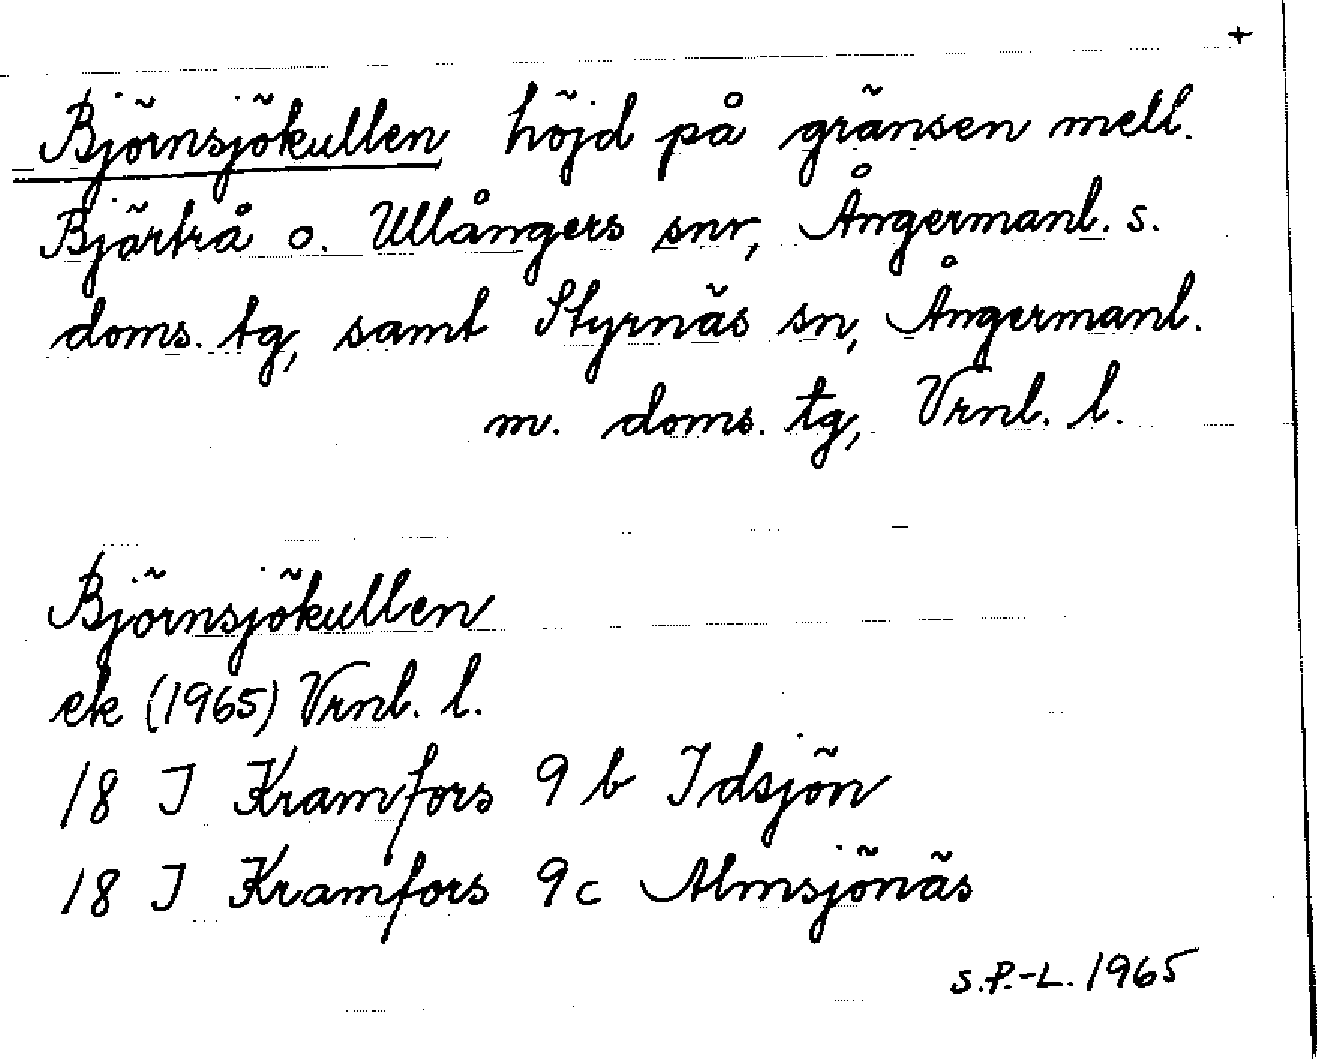 +
Björnsjökullen höjd på gränsen mell.
Bjärtrå o. Ullångers snr, Ångermanl. s.
doms. tg, samt Styrnäs sn, Ångermanl.
m. doms. tg, Vrnl. l.
Björnsjökullen
ek (1965) Vrnl. l.
18 I Kramfors 9 b Idsjön
18 I Kramfors 9 c Almsjönäs
S.P.-L. 1965